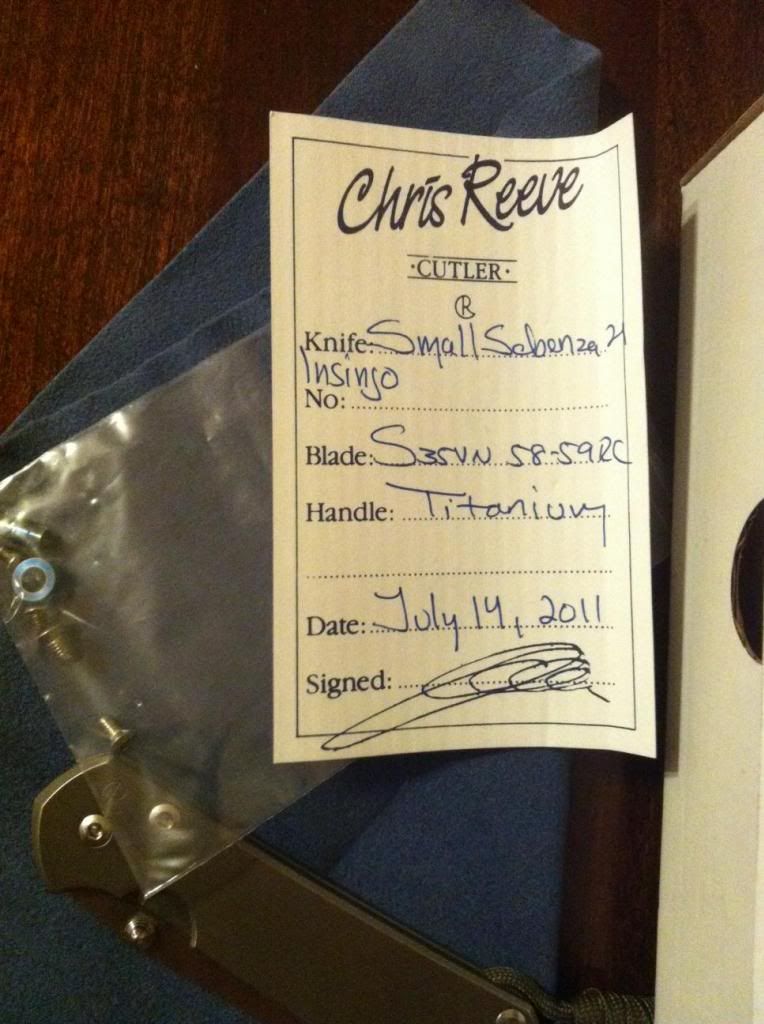 Chris Reeve
·CUTLER·
®
Knife: Small Sebenza 21
Insingo
No:
Blade: S35VN 58-59RC
Handle: Titanium
Date: July 14, 2011
Signed: